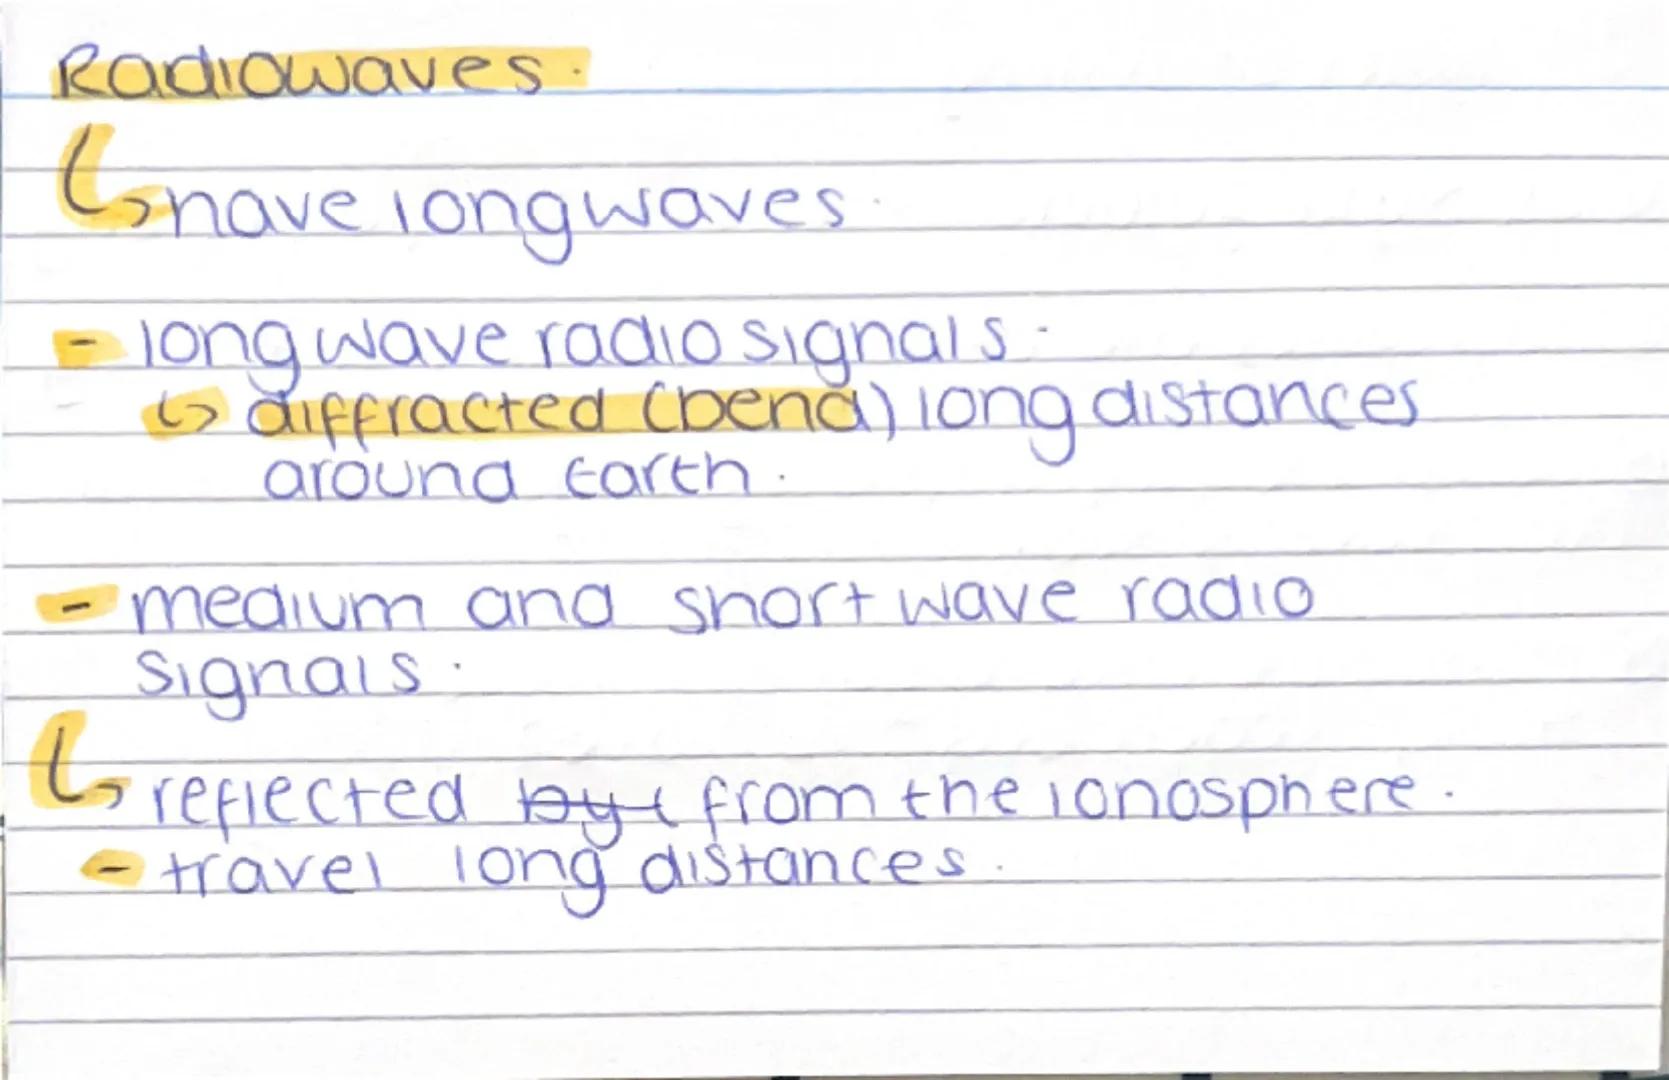 Radiowaves.
↳ have long waves.
- long wave radio signals.
↳ diffracted (bend) long distances
around Earth.
- medium and short wave radio
signals.
↳ reflected by t from the ionosphere.
- travel long distances.